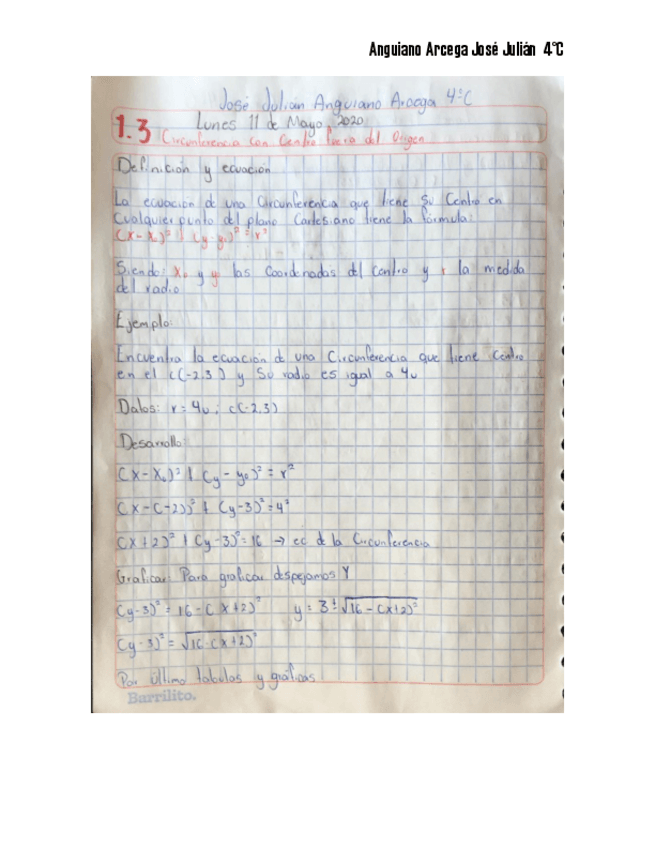 Anguiano Arcega José Julián 4°C
José Julián Anguiano Arcega 4°C
Lunes 11 de Mayo, 2020
1.3 Circunferencia con Centro fuera del Origen
Definición y ecuación
La ecuación de una Circunferencia que tiene su Centro en
Cualquier punto del plano Cartesiano tiene la fórmula:
(x-x₀)² + (y-y₀)² = r²
Siendo: x₀ y y₀ las Coordenadas del centro y r la medida
del radio
Ejemplo:
Encuentra la ecuación de una Circunferencia que tiene Centro
en el c(-2,3) y Su radio es igual a 4u
Datos: r = 4u ; c(-2,3)
Desarrollo:
(x-x₀)² + (y-y₀)² = r²
(x-(-2))² + (y-3)² = 4²
(x+2)² + (y-3)² = 16 → ec de la Circunferencia
Graficar: Para graficar despejamos Y
(y-3)² = 16-(x+2)² y = 3±√16-(x+2)²
(y-3)² = √16-(x+2)²
Por último tabulas y gráficas
Barrilito.